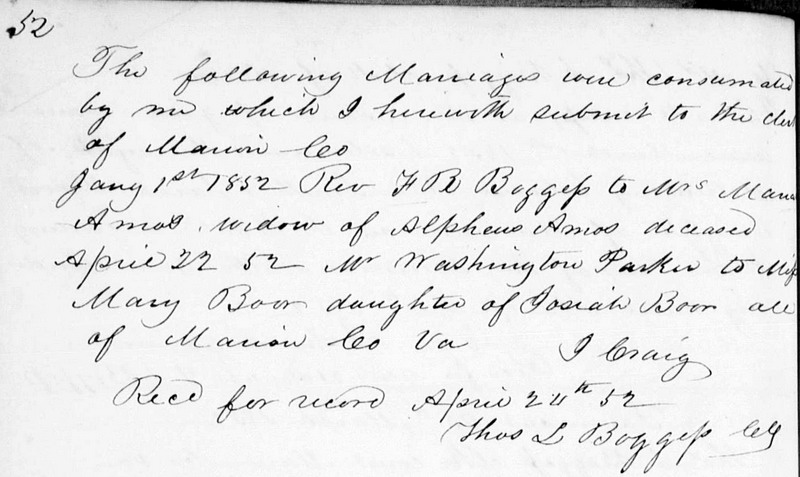 52
The following Marriages were consumated
by me which I herewith submit to the clerk
of Marion Co
Jany 1st 1852 Rev F B Boggess to Mrs
Amos widow of Alpheus Amos deceased
April 22 52 Mr Washington Parker to Miss
Mary Boor daughter of Josiah Boor all
of Marion Co Va J Craig
Recd for record April 24th 52
Thos L Boggess Clk